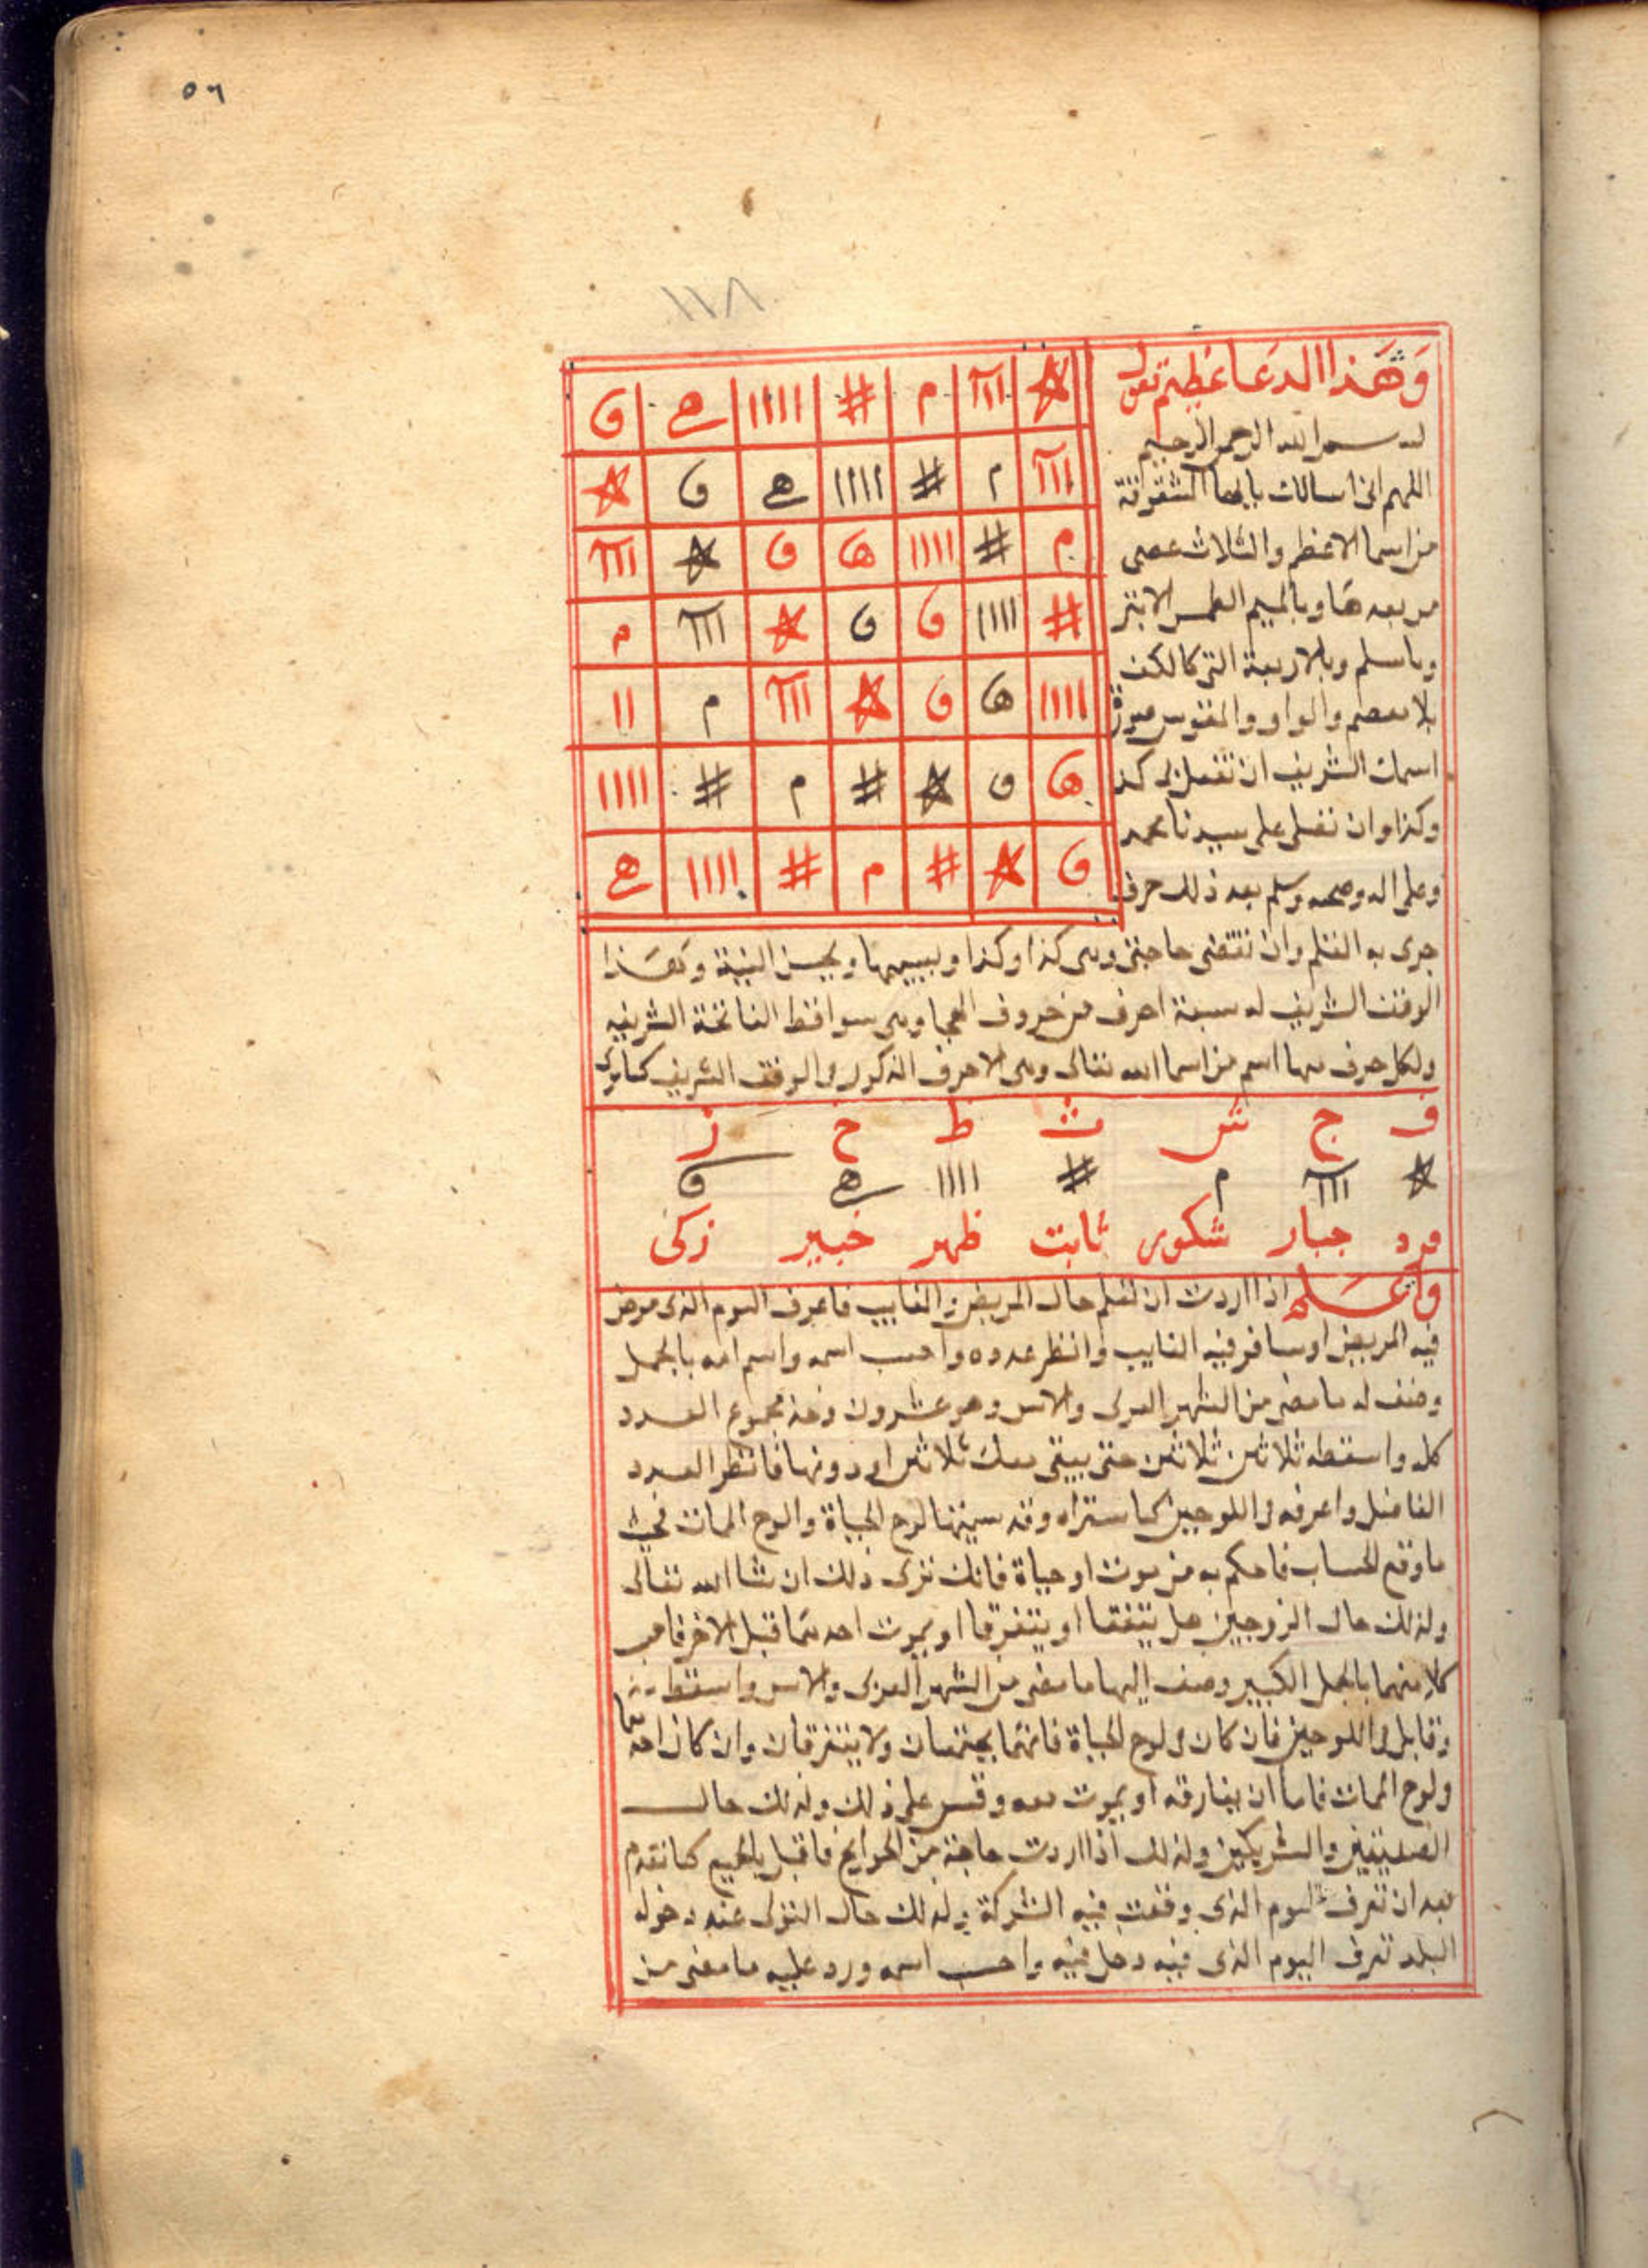 ٥٦
١١٨
وهذا الدعا عظيم تقول
بسم الله الرحمن الرحيم
اللهم اني اسالك بالها المشقوقة
من اسما الاعظم والثلاث عصى
من بعدها وبالميم الطمس الابتر
وبا سلم وبالاربعة التي كالكف
بلا معصم والواو والمقوس
اسمك الشريف ان تفعل لي كذ
وكذا وان تصلي على سيدنا محمد
وعلى اله وصحبه وسلم بعد ذلك حرف
✡ ااا م # اااا ھ و
ااا م # اااا ھ و ✡
م # اااا ھ و ✡ ااا
# اااا و و ✡ ااا م
اااا ھ و ✡ ااا م اا
ھ و ✡ # م # اااا
و ✡ # م # اااا ھ
جرى به القلم وان تقضى حاجتى وهى كذا وكذا ويسميها ويحسن النية وهذا
الوفق الشريف له سبعة احرف من حروف الهجا وهى سواقط الفاتحة الشريفه
ولكل حرف منها اسم من اسما الله تعالى وهى الاحرف المذكوره والوفق الشريف كما ترى
ف ج ش ث ظ خ ز
✡ ااا م # اااا ھ و
فرد جبار شكور ثابت ظهر خبير زكى
واعلم اذا اردت ان تعلم حال المريض والغايب فاعرف اليوم الذى مرض
فيه المريض او سافر فيه الغايب وانظر عدده واحسب اسمه واسم امه بالجمل
وضف له ما مضى من الشهر العربى والاس وهو عشرون وخذ مجموع العدد
كله واسقطه ثلاثين ثلاثين حتى يبقى معك ثلاثين او دونها فانظر العدد
الفاضل واعرفه فى اللوحين كما ستراه وقد سميتها لوح الحياة والوح الممات فحيث
ما وقع الحساب فاحكم به من موت او حياة فانك ترى ذلك ان شا الله تعالى
وكذلك حال الزوجين هل يتفقا او يتفرقا او يموت احدهما قبل الاخر فاحسب
كلا منهما بالجمل الكبير وضف اليها ما مضى من الشهر العربى والاس واسقط
وقابل فى اللوحين فان كان فى لوح الحياة فانهما يجتمعان ولا يتفرقان وان كان احدهما
ولوح الممات فاما ان يفارقه او يموت معه وقس على ذلك وكذلك حال
الصديقين والشريكين وكذلك اذا اردت حاجة من الحوايج فاقبل كما تقدم
بعد ان تعرف اليوم الذى وقعت فيه الشركة وكذلك حال المتولى عند دخوله
البلد تعرف اليوم الذى فيه دخل فيه واحسب اسمه وزد عليه ما مضى من